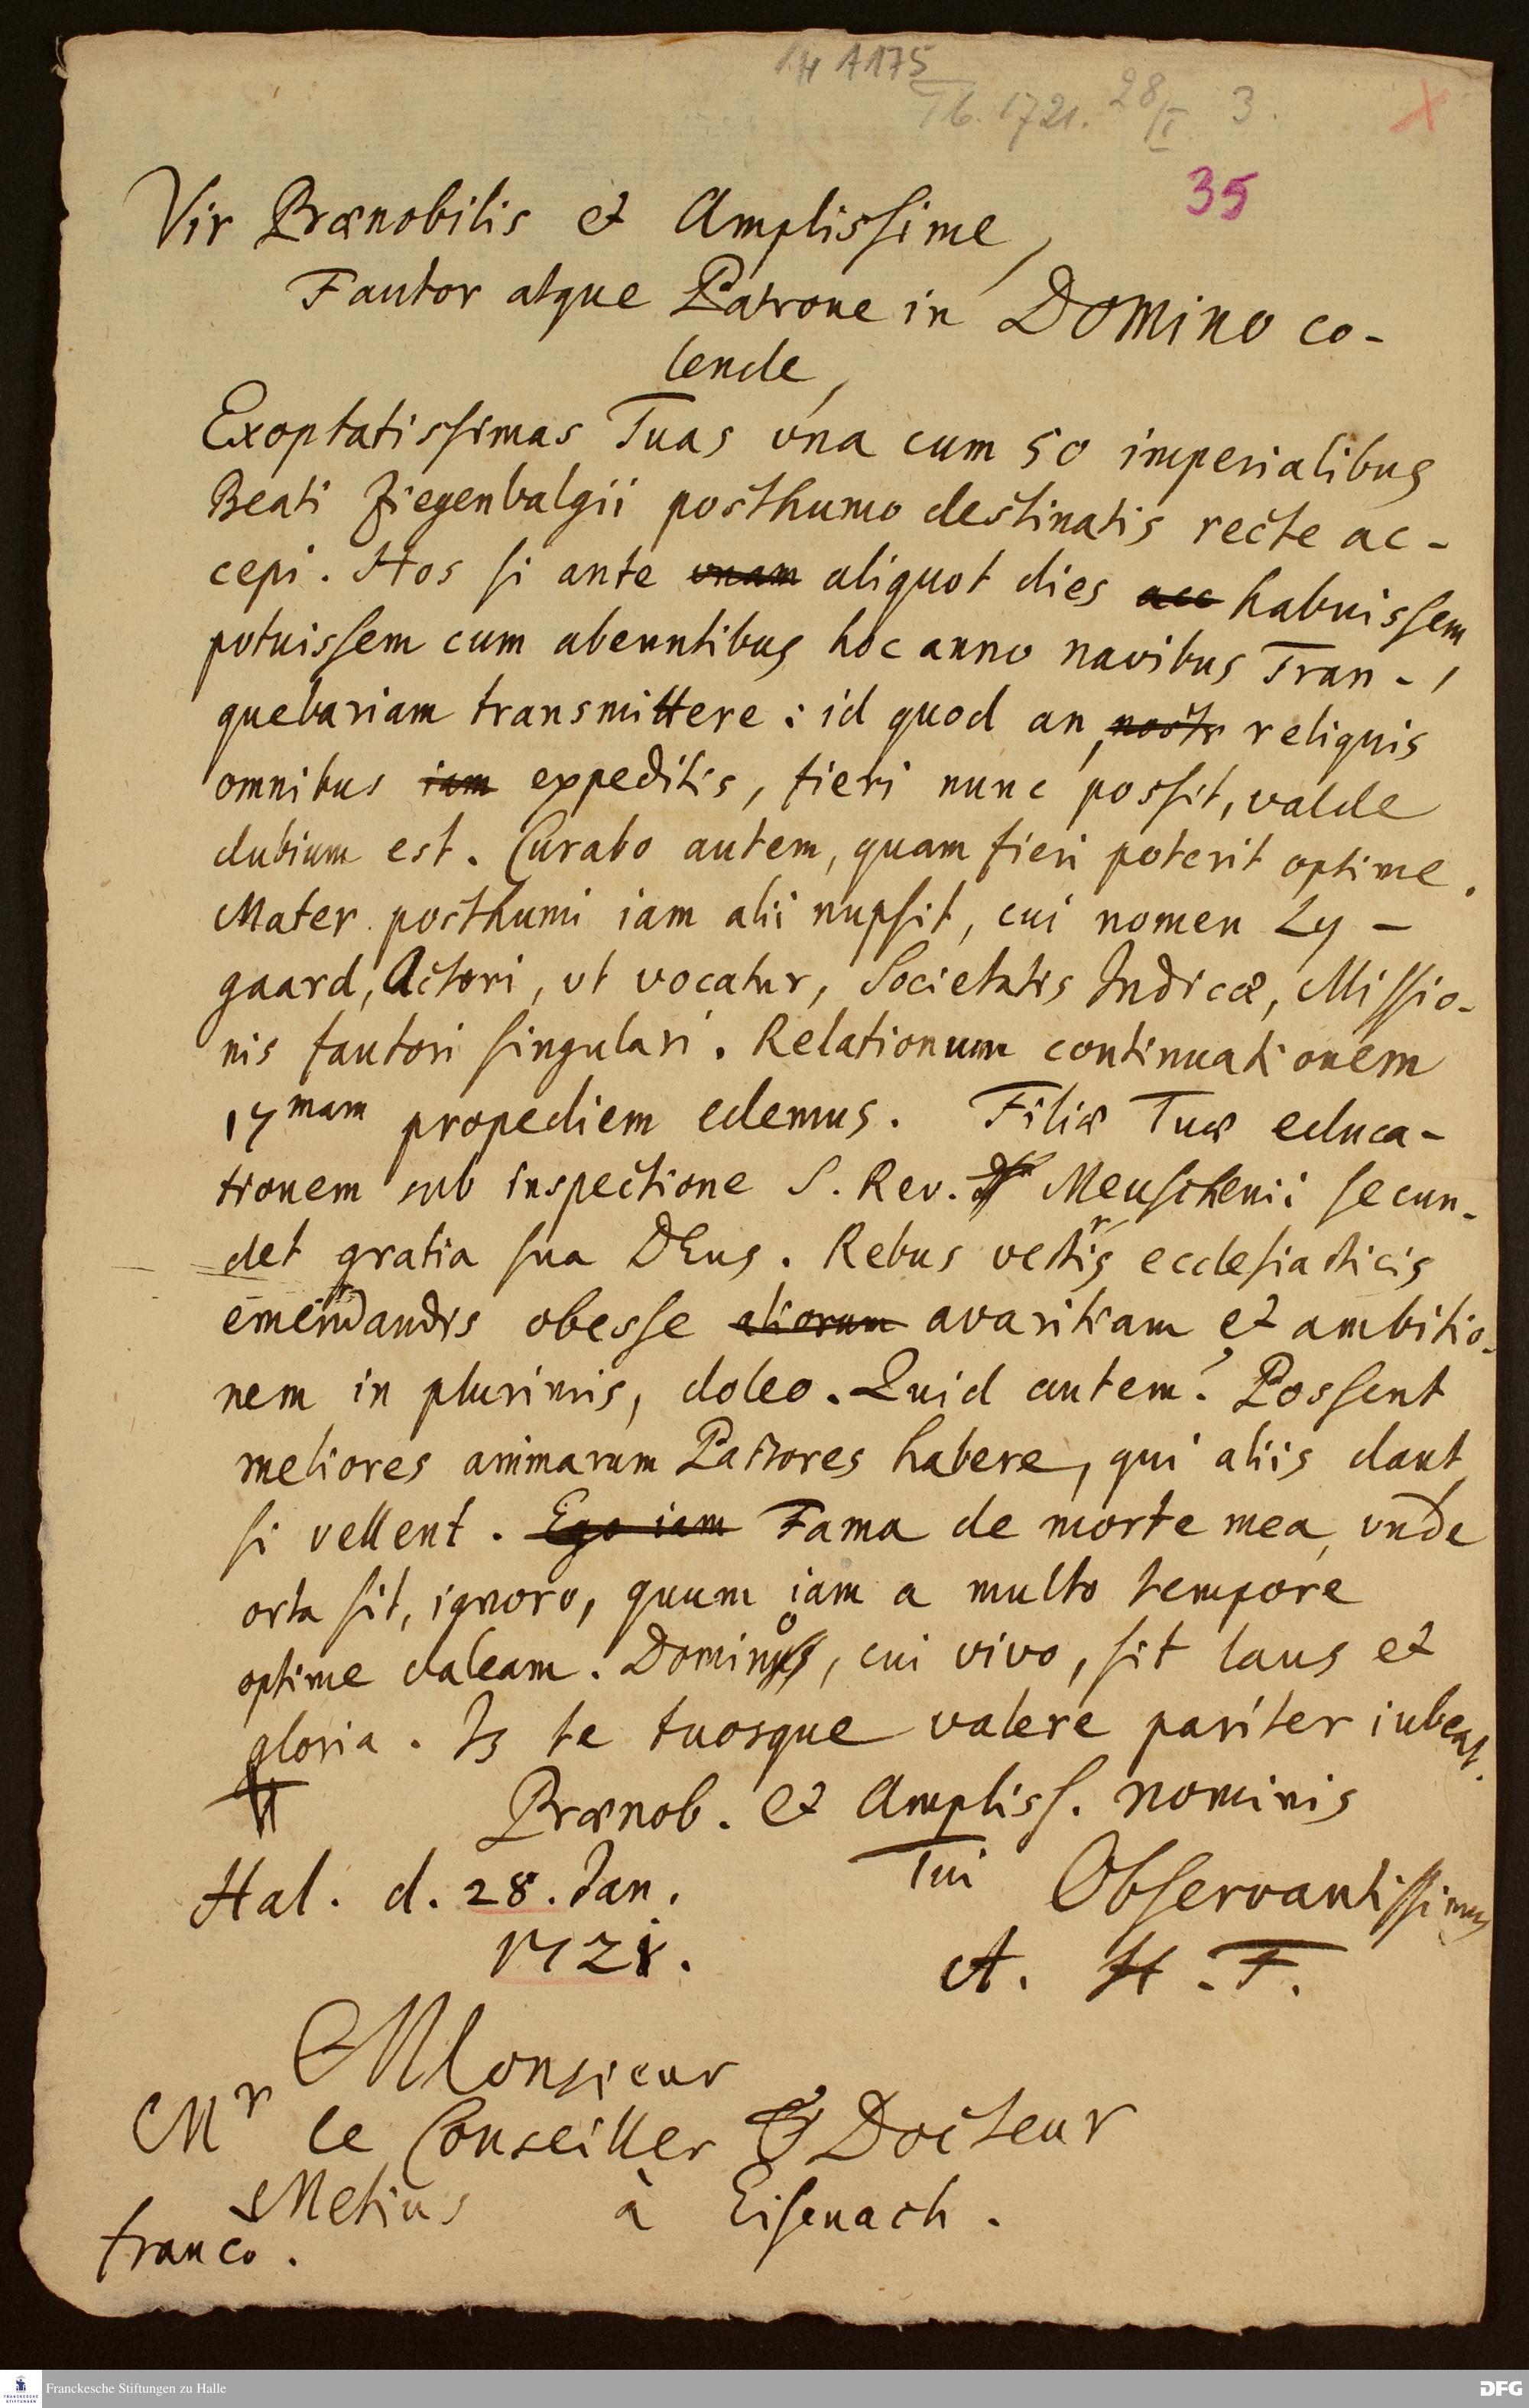 1 H 1175
Tb. 1721. 28/I. 3.
35
Vir Prænobilis et Amplissime,
Fautor atque Patrone in DOMINO co-
lende,
Exoptatissimas Tuas vna cum 50 imperialibus
Beati Ziegenbalgii posthumo destinatis recte ac-
cepi. Hos si ante vnam aliquot dies acc habuissem,
potuissem cum abeuntibus hoc anno navibus Tran-
quebariam transmittere: id quod an, nostr reliquis
omnibus iam expeditis, fieri nunc possit, valde
dubium est. Curabo autem, quam fieri poterit optime.
Mater posthumi iam alii nupsit, cui nomen Ly-
gaard, Actori, vt vocatur, Societatis Indicæ, Missio-
nis fautori singulari. Relationum continuationem
17mam propediem edemus. Filiæ Tuæ educa-
tionem sub inspectione S. Rev. Meuschenii secun-
det gratia sua DEus. Rebus vestris ecclesiasticis
emendandis obesse aliorum avaritiam et ambitio-
nem in plurimis, doleo. Quid autem? Possent
meliores animarum Pastores habere, qui aliis dant,
si vellent. Ego iam Fama de morte mea, vnde
orta sit, ignoro, quum iam a multo tempore
optime valeam. Domino, cui vivo, sit laus et
gloria. Is te tuosque valere pariter iubeat.
Prænob. et Ampliss. nominis
Tui Observantissimus
Hal. d. 28. Jan.
1721.
A. H. F.
Monsieur
Mr le Conseiller & Docteur
Metius à Eisenach.
franco.
Franckesche Stiftungen zu Halle
FRANCKESCHE STIFTUNGEN
DFG